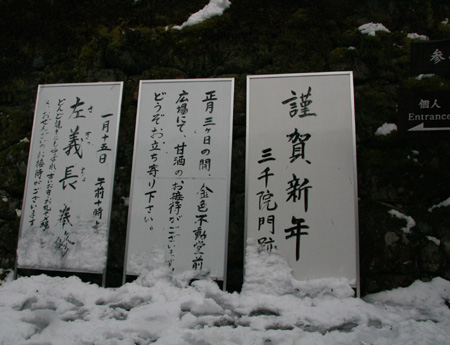 謹賀新年
三千院門跡
正月三ヶ日の間 金色不動堂前
広場にて、甘酒のお接待がございます
どうぞお立ち寄り下さい。
一月十五日 午前十時より
さぎちょう
左義長
お接待がございます
参
個人
Entrance